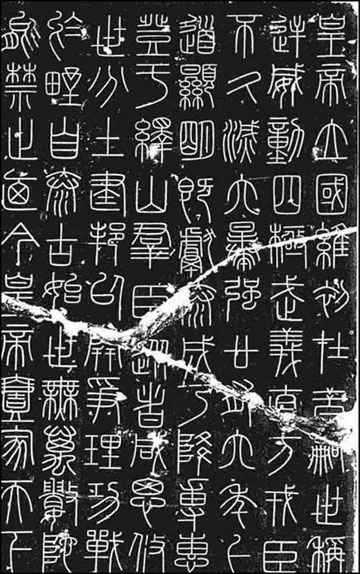 皇帝立國維初在昔嗣世稱
逆威動四極武義直方戎臣
不久滅六暴強廿有六年上
道顯明既獻泰成乃降尃惠
登于繹山群臣從者咸思攸
世分土建邦以開爭理功戰
於野自泰古始世無萬數陀
能禁止迺今皇帝壹家天下